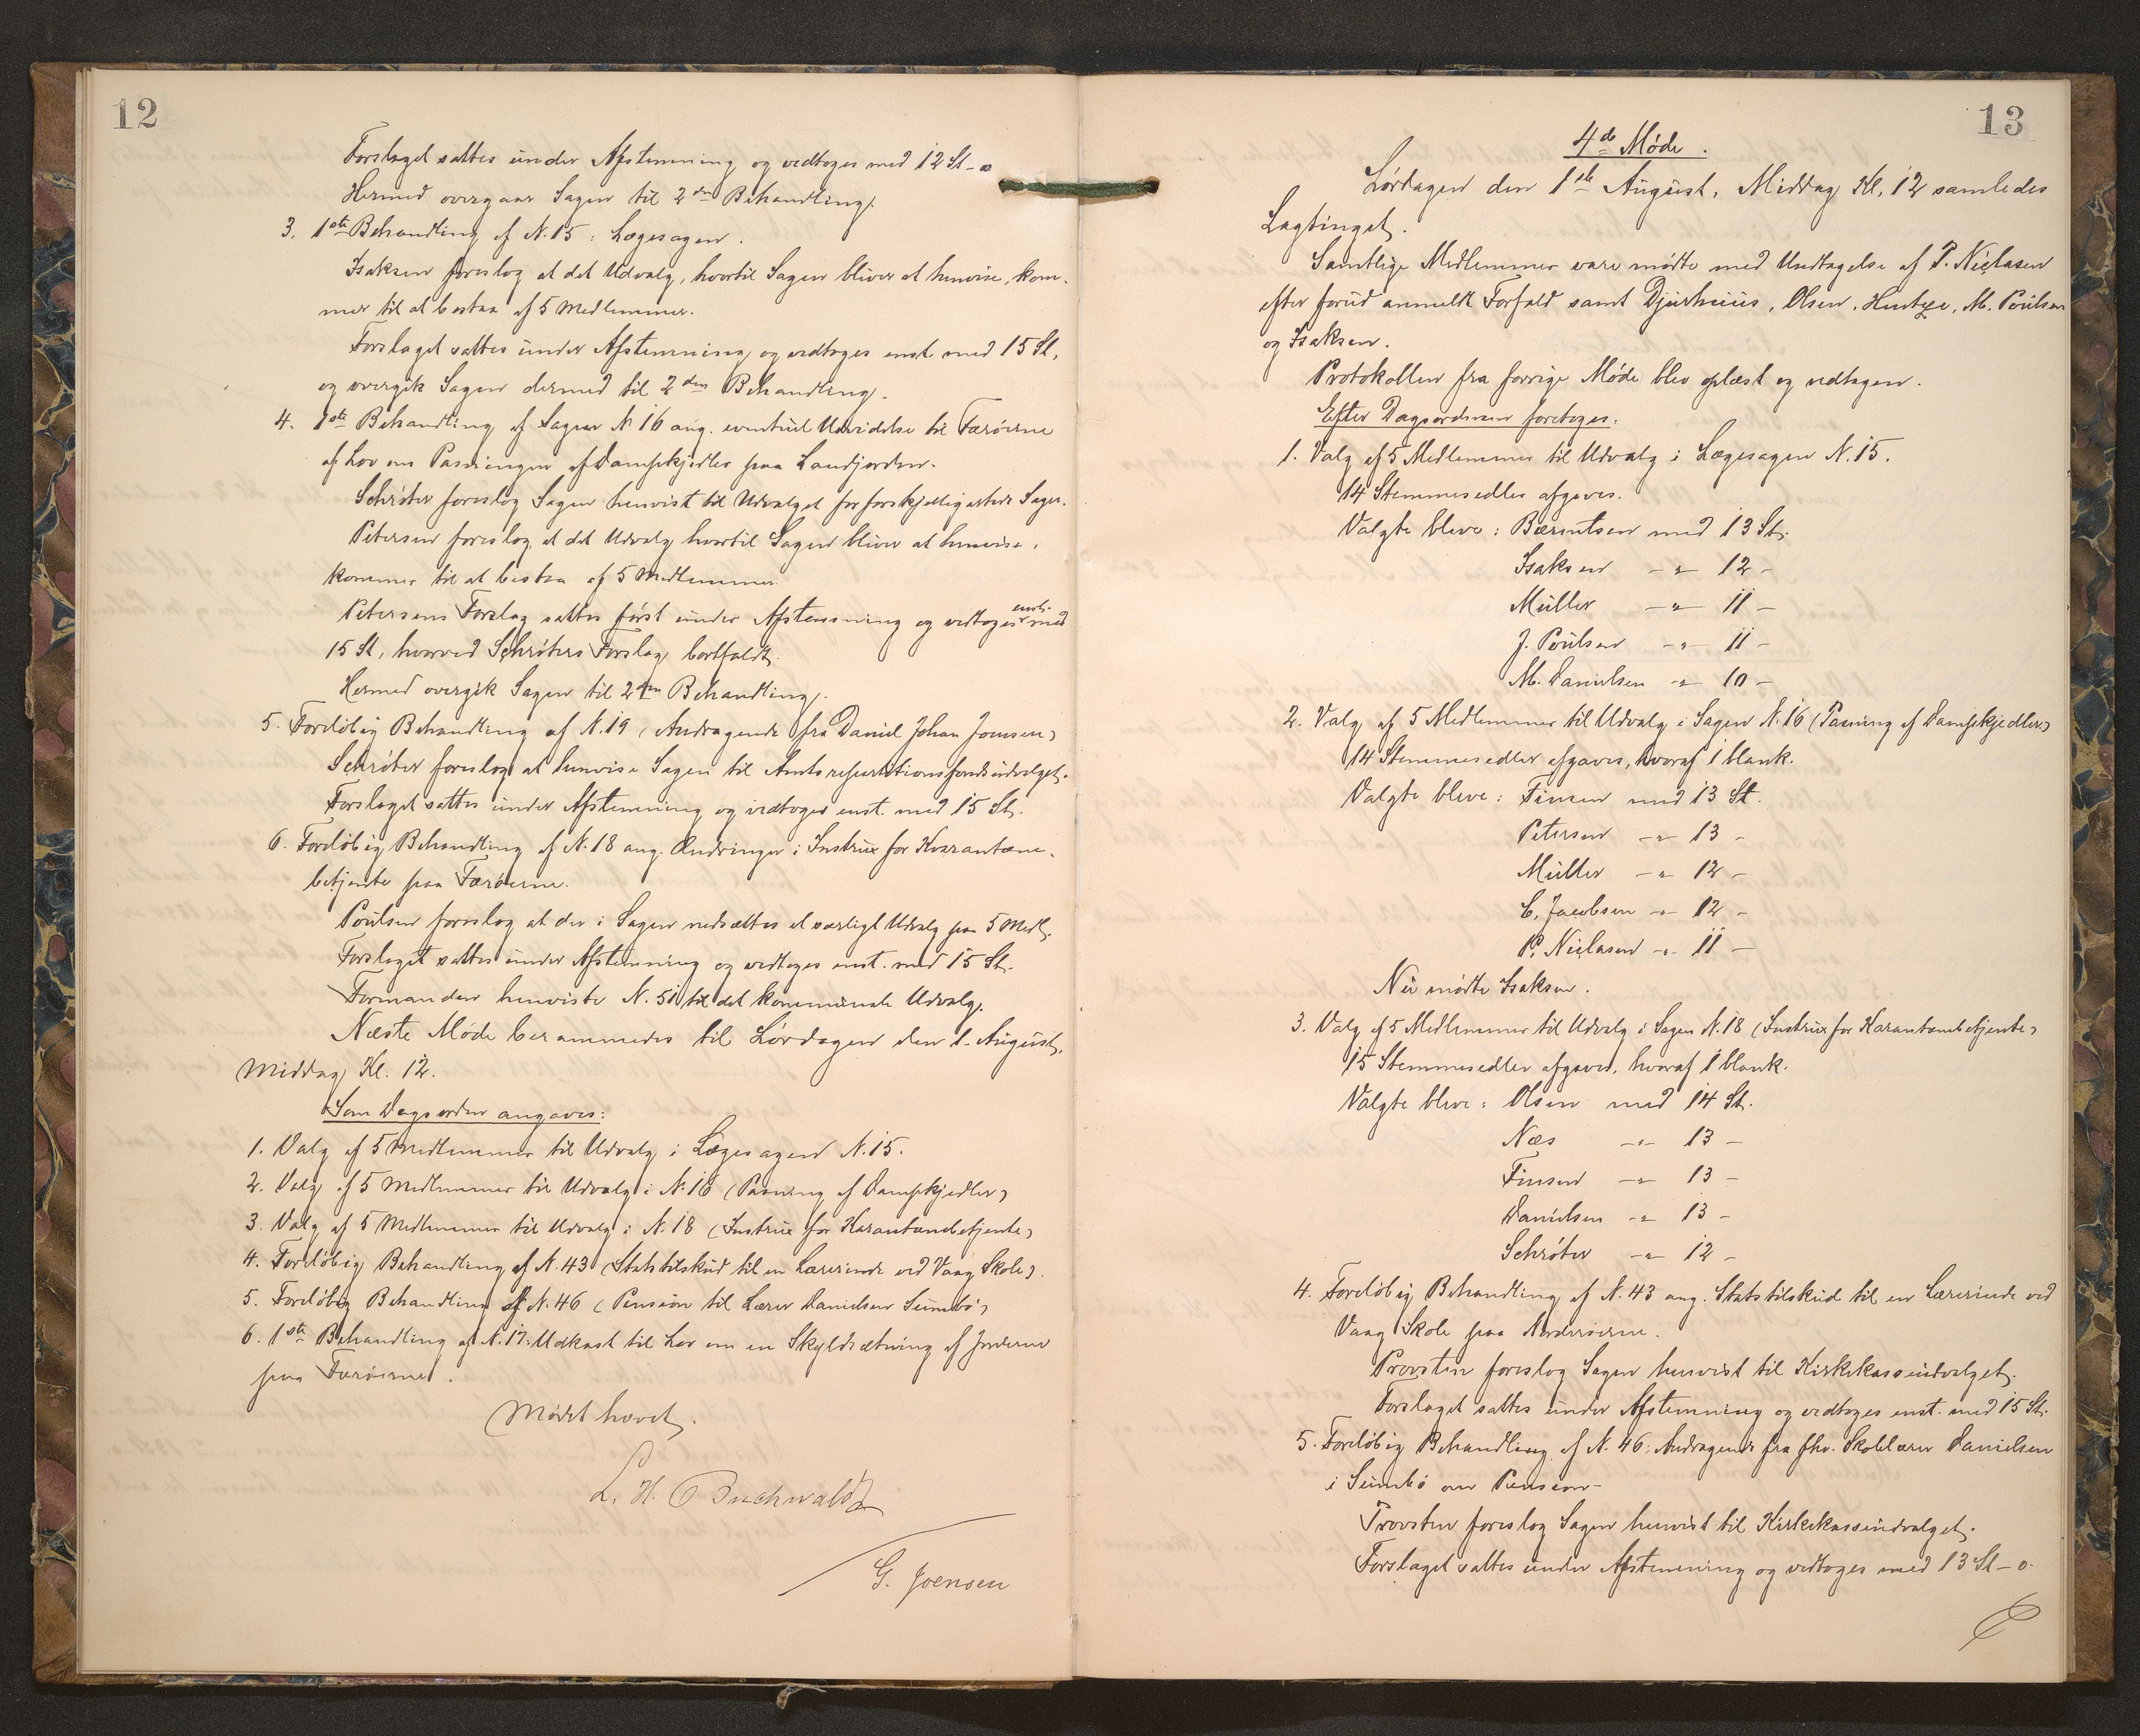 12
Forslaget sattes under Afstemning og vedtoges med 12 St - o
Hermed overgaar Sagen til 2den Behandling.
3. 1ste Behandling af N. 15: Lægesagen.
Isaksen foreslog at det Udvalg, hvortil Sagen bliver at henvise, kom-
mer til at bestaa af 5 Medlemmer.
Forslaget sattes under Afstemning og vedtoges enst. med 15 St,
og overgik Sagen dermed til 2den Behandling.
4. 1ste Behandling af Sagen N 16 ang. eventuel Udvidelse til Færøerne
af Lov om Pasningen af Dampkjedler paa Landjorden.
Schrøter foreslog Sagen henvist til Udvalget for forskjelligartede Sager.
Petersen foreslog, at det Udvalg hvortil Sagen bliver at henvise,
kommer til at bestaa af 5 Medlemmer
Petersens Forslag sattes først under Afstemning og vedtoges enst. med
15 St, hvorved Schrøters Forslag bortfaldt.
Hermed overgik Sagen til 2den Behandling.
5. Foreløbig Behandling af N. 19 (Andragende fra Daniel Johan Joensen)
Schrøter foreslog at henvise Sagen til Amtsrepartitionsfondsudvalget.
Forslaget sattes under Afstemning og vedtoges enst. med 15 St.
6. Foreløbig Behandling af N. 18 ang. Ændringer i Instrux for Karantæne-
betjente paa Færøerne.
Poulsen foreslog at der i Sagen nedsættes et særligt Udvalg paa 5 Medl.
Forslaget sattes under Afstemning og vedtoges enst. med 15 St.
Formanden henviste N. 51 til det kommunale Udvalg.
Næste Møde berammedes til Lørdagen den 1. August,
Middag Kl. 12.
Som Dagsorden angaves:
1. Valg af 5 Medlemmer til Udvalg i Lægesagen N. 15.
2. Valg af 5 Medlemmer til Udvalg i N. 16 (Pasning af Dampkjedler)
3. Valg af 5 Medlemmer til Udvalg i N. 18 (Instrux for Karantænebetjente)
4. Foreløbig Behandling af N. 43 (Statstilskud til en Lærerinde ved Vaag Skole).
5. Foreløbig Behandling af N. 46 (Pension til Lærer Danielsen Sumbø)
6. 1ste Behandling af N. 17: Udkast til Lov om en Skyldsætning af Jorderne
paa Færøerne.
Mødet hævet.
L. H. Buchwaldt
G. Joensen
13
4de Møde.
Lørdagen den 1ste August, Middag Kl. 12 samledes
Lagtinget.
Samtlige Medlemmer vare mødte med Undtagelse af P. Niclasen
efter forud anmeldt Forfald samt Djurhuus, Olsen, Hentze, M. Poulsen
og Isaksen.
Protokollen fra forrige Møde blev oplæst og vedtagen.
Efter Dagsordenen foretoges:
1. Valg af 5 Medlemmer til Udvalg i Lægesagen N. 15.
14 Stemmesedler afgaves.
Valgte bleve: Bærentsen med 13 St.
Isaksen -"- 12 -
Müller -"- 11 -
J. Poulsen -"- 11 -
M. Danielsen -"- 10 -
2. Valg af 5 Medlemmer til Udvalg i Sagen N. 16 (Pasning af Dampkjedler)
14 Stemmesedler afgaves, hvoraf 1 blank.
Valgte bleve: Finsen med 13 St.
Petersen -"- 13 -
Müller -"- 12 -
C. Jacobsen -"- 12 -
P. Niclasen -"- 11 -
Nu mødte Isaksen.
3. Valg af 5 Medlemmer til Udvalg i Sagen N. 18 (Instrux for Karantænebetjente)
15 Stemmesedler afgaves, hvoraf 1 blank.
Valgte bleve: Olsen med 14 St.
Næs -"- 13 -
Finsen -"- 13 -
Danielsen -"- 13 -
Schrøter -"- 12 -
4. Foreløbig Behandling af N. 43 ang. Statstilskud til en Lærerinde ved
Vaag Skole paa Norderøerne.
Provsten foreslog Sagen henvist til Kirkekasseudvalget.
Forslaget sattes under Afstemning og vedtoges enst. med 15 St.
5. Foreløbig Behandling af N. 46: Andragende fra fhv. Skolelærer Danielsen
i Sumbø om Pension -
Provsten foreslog Sagen henvist til Kirkekasseudvalget.
Forslaget sattes under Afstemning og vedtoges med 13 St - o.